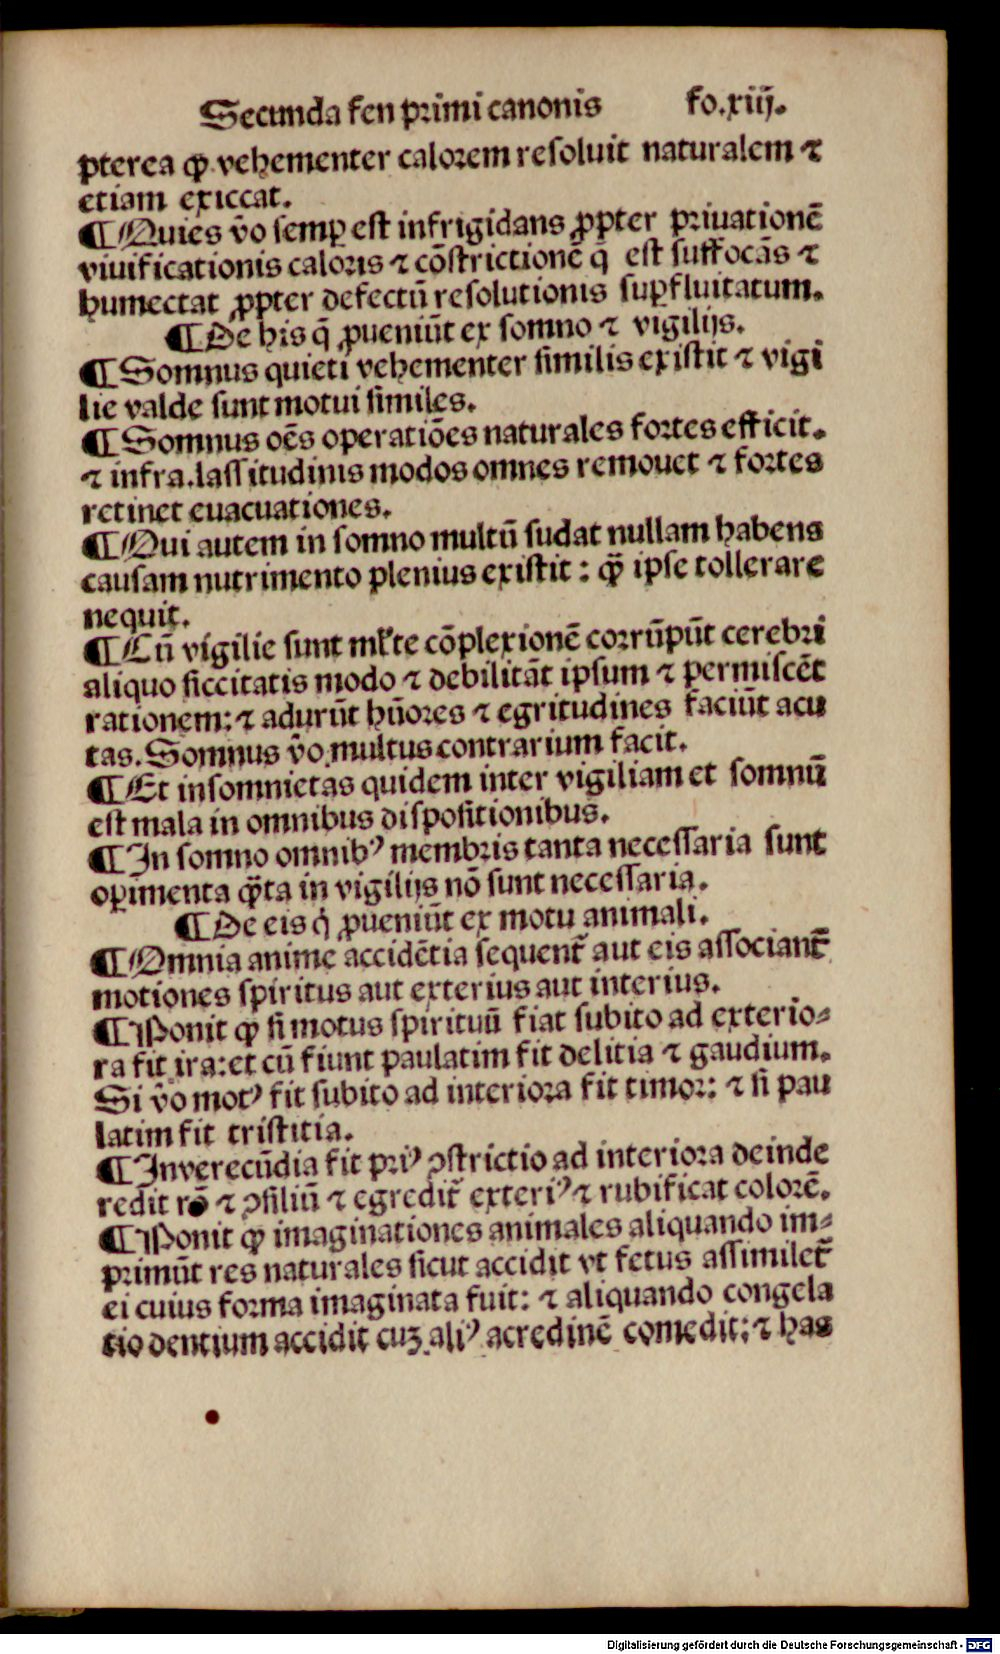 Secunda fen primi canonis fo.xiij.
pterea ꝙ vehementer calorem resoluit naturalem ⁊
etiam exiccat.
¶ Quies v̄o semꝑ est infrigidans ꝓpter priuationē
viuificationis caloris ⁊ cōstrictionē q̄ est suffocās ⁊
humectat ꝓpter defectū resolutionis suꝑfluitatum.
¶ De his q̄ ꝓueniūt ex somno ⁊ vigilijs.
¶ Somnus quieti vehementer similis existit ⁊ vigi
lie valde sunt motui similes.
¶ Somnus oēs operatiōes naturales fortes efficit.
⁊ infra. lassitudinis modos omnes remouet ⁊ fortes
retinet euacuationes.
¶ Qui autem in somno multū sudat nullam habens
causam nutrimento plenius existit : ꝙ̄ ipse tollerare
nequit.
¶ Cū vigilie sunt ml̄te cōplexionē corrūpūt cerebri
aliquo siccitatis modo ⁊ debilitāt ipsum ⁊ permiscēt
rationem: ⁊ adurūt hūores ⁊ egritudines faciūt acu
tas. Somnus v̄o multus contrarium facit.
¶ Et insomnietas quidem inter vigiliam et somnū
est mala in omnibus dispositionibus.
¶ In somno omnibꝰ membris tanta necessaria sunt
oꝑimenta ꝙ̄ta in vigilijs nō sunt necessaria.
¶ De eis q̇ ꝓueniūt ex motu animali.
¶ Omnia anime accidētia sequent̄ aut eis associant̄
motiones spiritus aut exterius aut interius.
¶ Ponit ꝙ si motus spirituū fiat subito ad exterio⸗
ra fit ira: et cū fiunt paulatim fit delitia ⁊ gaudium.
Si v̄o motꝰ fit subito ad interiora fit timor: ⁊ si pau
latim fit tristitia.
¶ Inverecūdia fit priꝰ ꝯstrictio ad interiora deinde
redit rō ⁊ ꝯsiliū ⁊ egredit̄ exteriꝰ ⁊ rubificat colorē.
¶ Ponit ꝙ imaginationes animales aliquando im⸗
primūt res naturales sicut accidit vt fetus assimilet̄
ei cuius forma imaginata fuit: ⁊ aliquando congela
tio dentium accidit cuꝫ aliꝰ acredinē comedit: ⁊ has
Digitalisierung gefördert durch die Deutsche Forschungsgemeinschaft - DFG